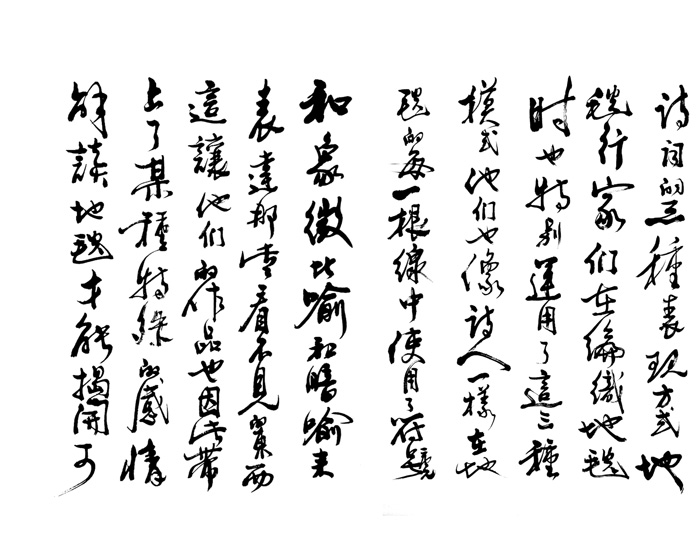 詩詞的三種表現方式地
毯行家們在編織地毯
時也特別運用了這三種
模式他們也像詩人一樣在地
毯的每一根線中使用了符號
和象徵比喻和暗喻來
表達那些看不見的東西
這讓他們的作品也因此帶
上了某種特殊的感情
解讀地毯才能揭開